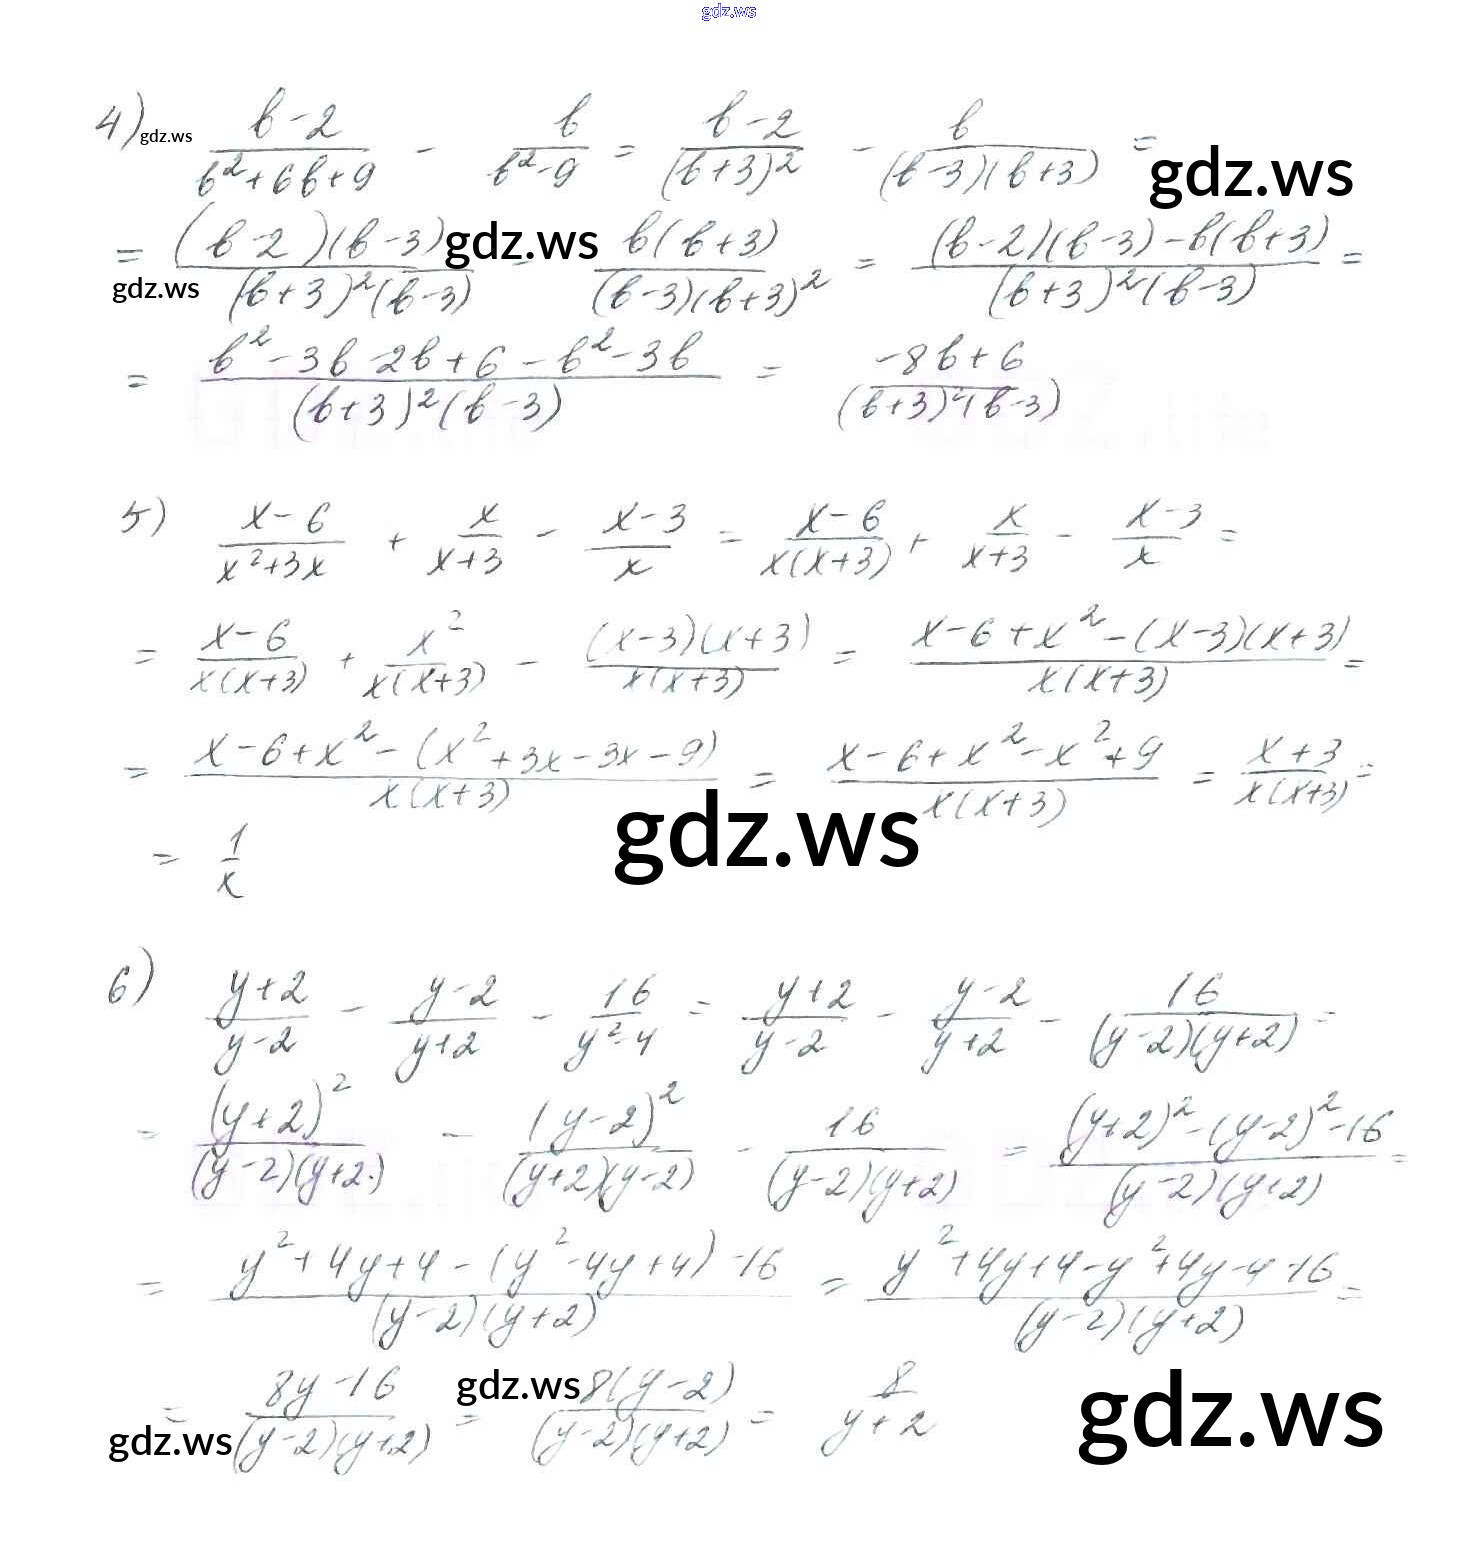 gdz.ws
4) gdz.ws (b-2)/(b²+6b+9) - b/(b²-9) = (b-2)/(b+3)² - b/((b-3)(b+3)) = gdz.ws
= ((b-2)(b-3))/((b+3)²(b-3)) gdz.ws - (b(b+3))/((b-3)(b+3)²) = ((b-2)(b-3)-b(b+3))/((b+3)²(b-3)) =
gdz.ws
= (b²-3b-2b+6-b²-3b)/((b+3)²(b-3)) = (-8b+6)/((b+3)²(b-3))
5) (x-6)/(x²+3x) + x/(x+3) - (x-3)/x = (x-6)/(x(x+3)) + x/(x+3) - (x-3)/x =
= (x-6)/(x(x+3)) + x²/(x(x+3)) - ((x-3)(x+3))/(x(x+3)) = (x-6+x²-(x-3)(x+3))/(x(x+3)) =
= (x-6+x²-(x²+3x-3x-9))/(x(x+3)) = (x-6+x²-x²+9)/(x(x+3)) = (x+3)/(x(x+3)) =
gdz.ws
= 1/x
6) (y+2)/(y-2) - (y-2)/(y+2) - 16/(y²-4) = (y+2)/(y-2) - (y-2)/(y+2) - 16/((y-2)(y+2)) =
= (y+2)²/((y-2)(y+2)) - (y-2)²/((y+2)(y-2)) - 16/((y-2)(y+2)) = ((y+2)²-(y-2)²-16)/((y-2)(y+2)) =
= (y²+4y+4-(y²-4y+4)-16)/((y-2)(y+2)) = (y²+4y+4-y²+4y-4-16)/((y-2)(y+2)) =
= (8y-16)/((y-2)(y+2)) gdz.ws = (8(y-2))/((y-2)(y+2)) = 8/(y+2) gdz.ws
gdz.ws